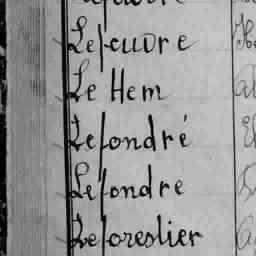 Lefeuvre
Le Hem
Lefondré
Lefondre
Leforestier